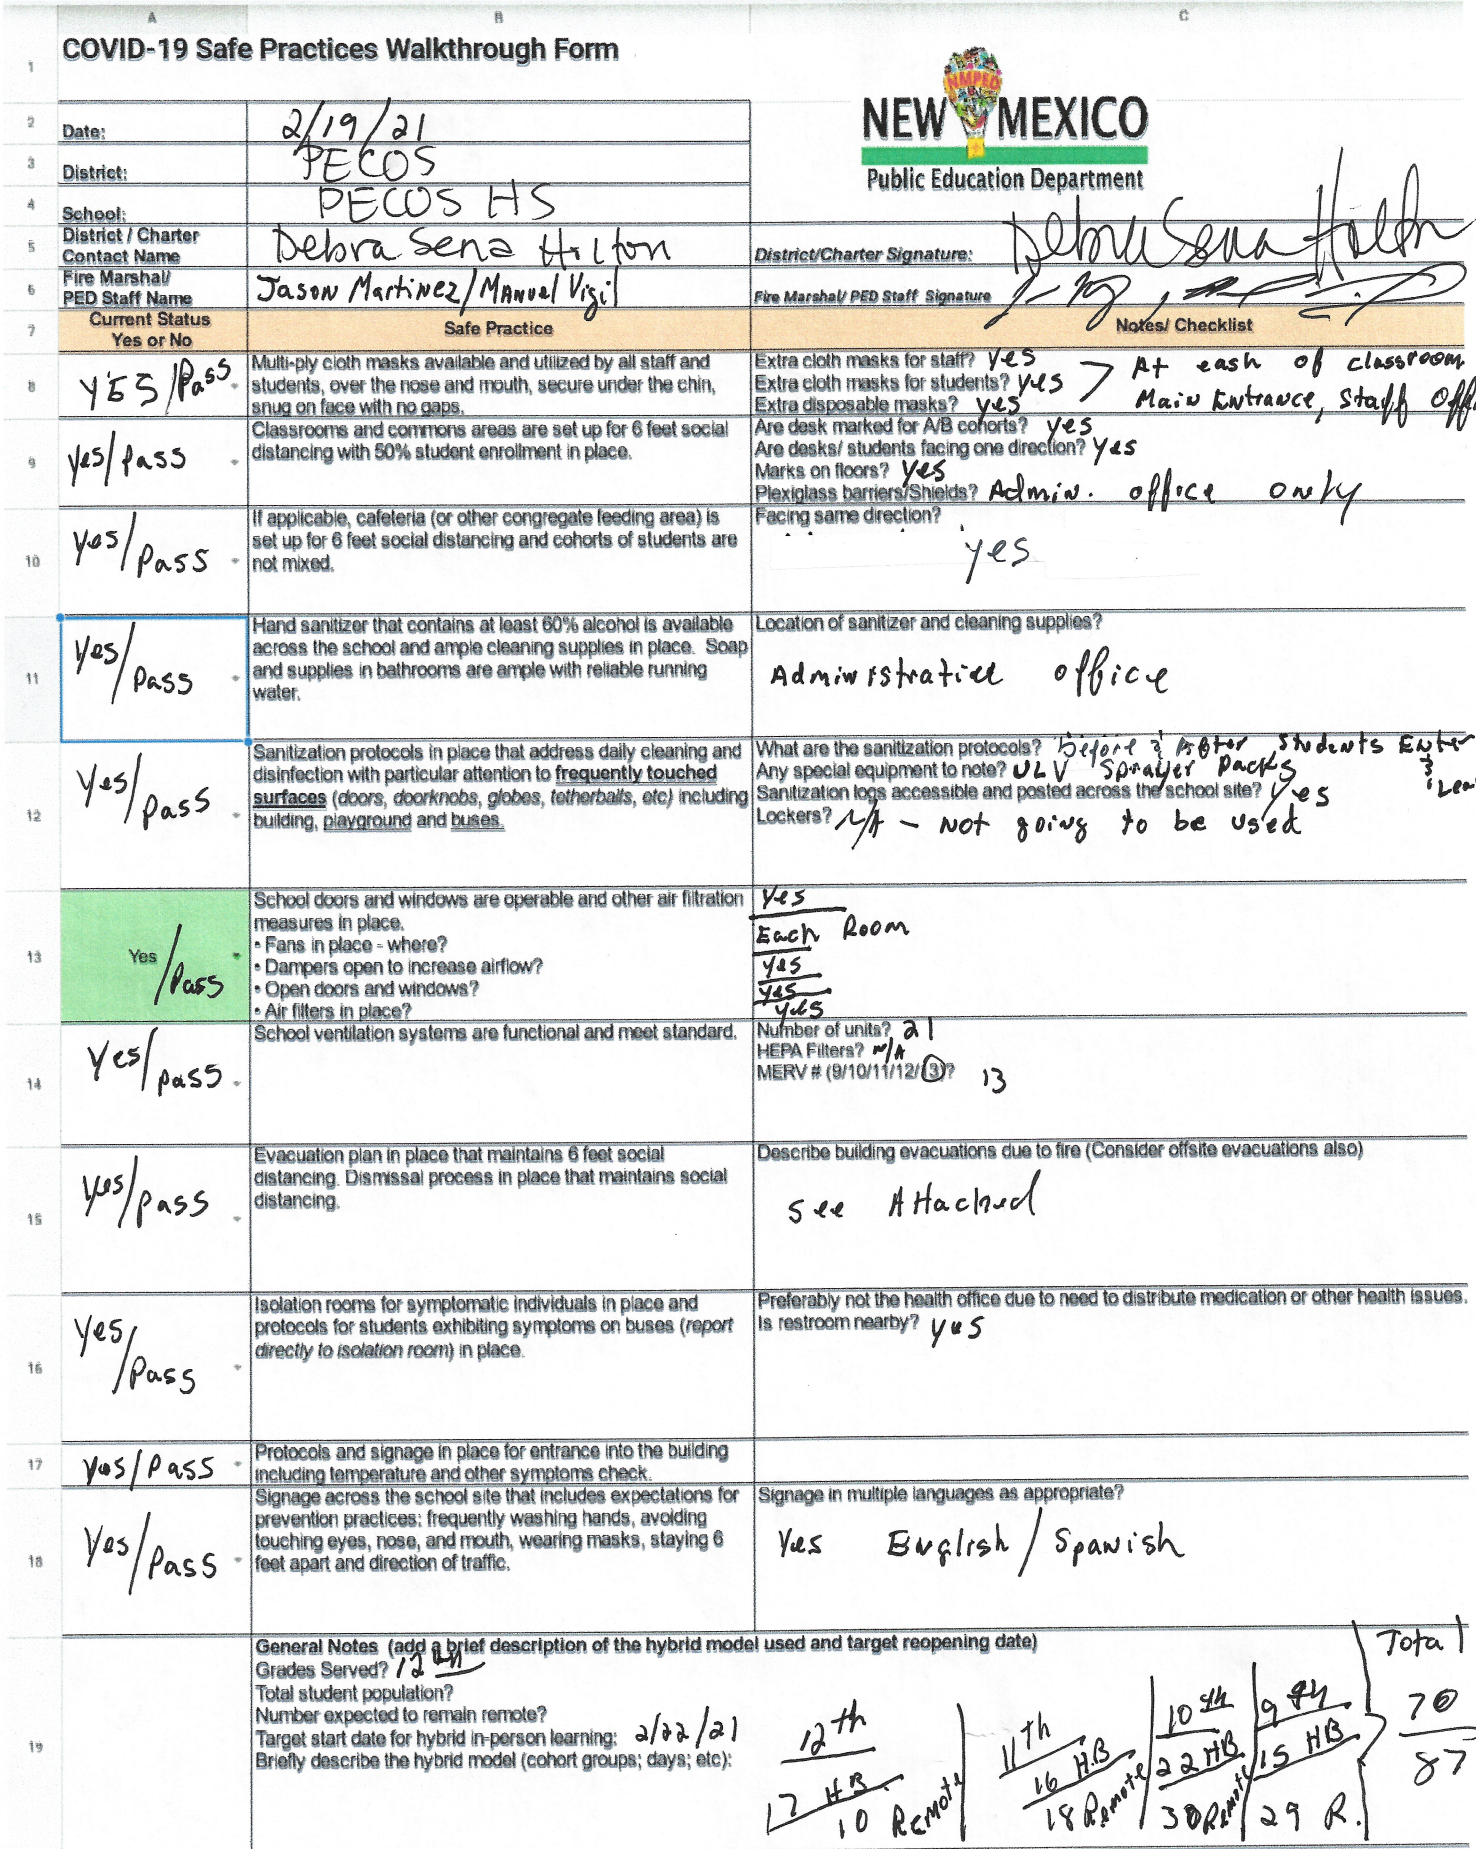 A B C
1 COVID-19 Safe Practices Walkthrough Form
NMPED
NEW MEXICO
Public Education Department
2 Date: 2/19/21
3 District: PECOS
4 School: PECOS HS
5 District / Charter Contact Name Debra Sena Hilton District/Charter Signature: Debra Sena Hilton
6 Fire Marshal/ PED Staff Name Jason Martinez/Manuel Vigil Fire Marshal/ PED Staff Signature
7 Current Status Yes or No Safe Practice Notes/ Checklist
8 YES/Pass
Multi-ply cloth masks available and utilized by all staff and
students, over the nose and mouth, secure under the chin,
snug on face with no gaps.
Extra cloth masks for staff? yes
Extra cloth masks for students? yes
Extra disposable masks? yes
At eash of classroom
Main Entrance, Staff Off
9 yes/pass
Classrooms and commons areas are set up for 6 feet social
distancing with 50% student enrollment in place.
Are desk marked for A/B cohorts? yes
Are desks/ students facing one direction? yes
Marks on floors? yes
Plexiglass barriers/Shields? Admin. office only
10 yes/pass
If applicable, cafeteria (or other congregate feeding area) is
set up for 6 feet social distancing and cohorts of students are
not mixed.
Facing same direction?
yes
11 Yes/pass
Hand sanitizer that contains at least 60% alcohol is available
across the school and ample cleaning supplies in place. Soap
and supplies in bathrooms are ample with reliable running
water.
Location of sanitizer and cleaning supplies?
office
12 Yes/pass
Sanitization protocols in place that address daily cleaning and
disinfection with particular attention to frequently touched
surfaces (doors, doorknobs, globes, tetherballs, etc) including
building, playground and buses.
What are the sanitization protocols? before & After Students Enter
& Lea
Any special equipment to note? ULV Sprayer Packs
Sanitization logs accessible and posted across the school site? Yes
Lockers? N/A - Not going to be used
13 Yes/Pass
School doors and windows are operable and other air filtration
measures in place.
• Fans in place - where?
• Dampers open to increase airflow?
• Open doors and windows?
• Air filters in place?
Yes
Each Room
yes
yes
yes
14 Yes/pass
School ventilation systems are functional and meet standard.
Number of units? 21
HEPA Filters? N/A
MERV # (9/10/11/12/13)? 13
15 Yes/pass
Evacuation plan in place that maintains 6 feet social
distancing. Dismissal process in place that maintains social
distancing.
Describe building evacuations due to fire (Consider offsite evacuations also)
see Attached
16 Yes/Pass
Isolation rooms for symptomatic individuals in place and
protocols for students exhibiting symptoms on buses (report
directly to isolation room) in place.
Preferably not the health office due to need to distribute medication or other health issues.
Is restroom nearby? yes
17 Yes/Pass
Protocols and signage in place for entrance into the building
including temperature and other symptoms check.
18 Yes/Pass
Signage across the school site that includes expectations for
prevention practices: frequently washing hands, avoiding
touching eyes, nose, and mouth, wearing masks, staying 6
feet apart and direction of traffic.
Signage in multiple languages as appropriate?
Yes English / Spanish
19 General Notes (add a brief description of the hybrid model used and target reopening date)
Grades Served? 12
Total student population?
Number expected to remain remote?
Target start date for hybrid in-person learning: 2/22/21
Briefly describe the hybrid model (cohort groups; days; etc):
12th
17 HB.
10 Remote
11th
16 HB
18 Remote
10th
22 HB
30 Remote
9th
15 HB
29 R.
Total
70
87